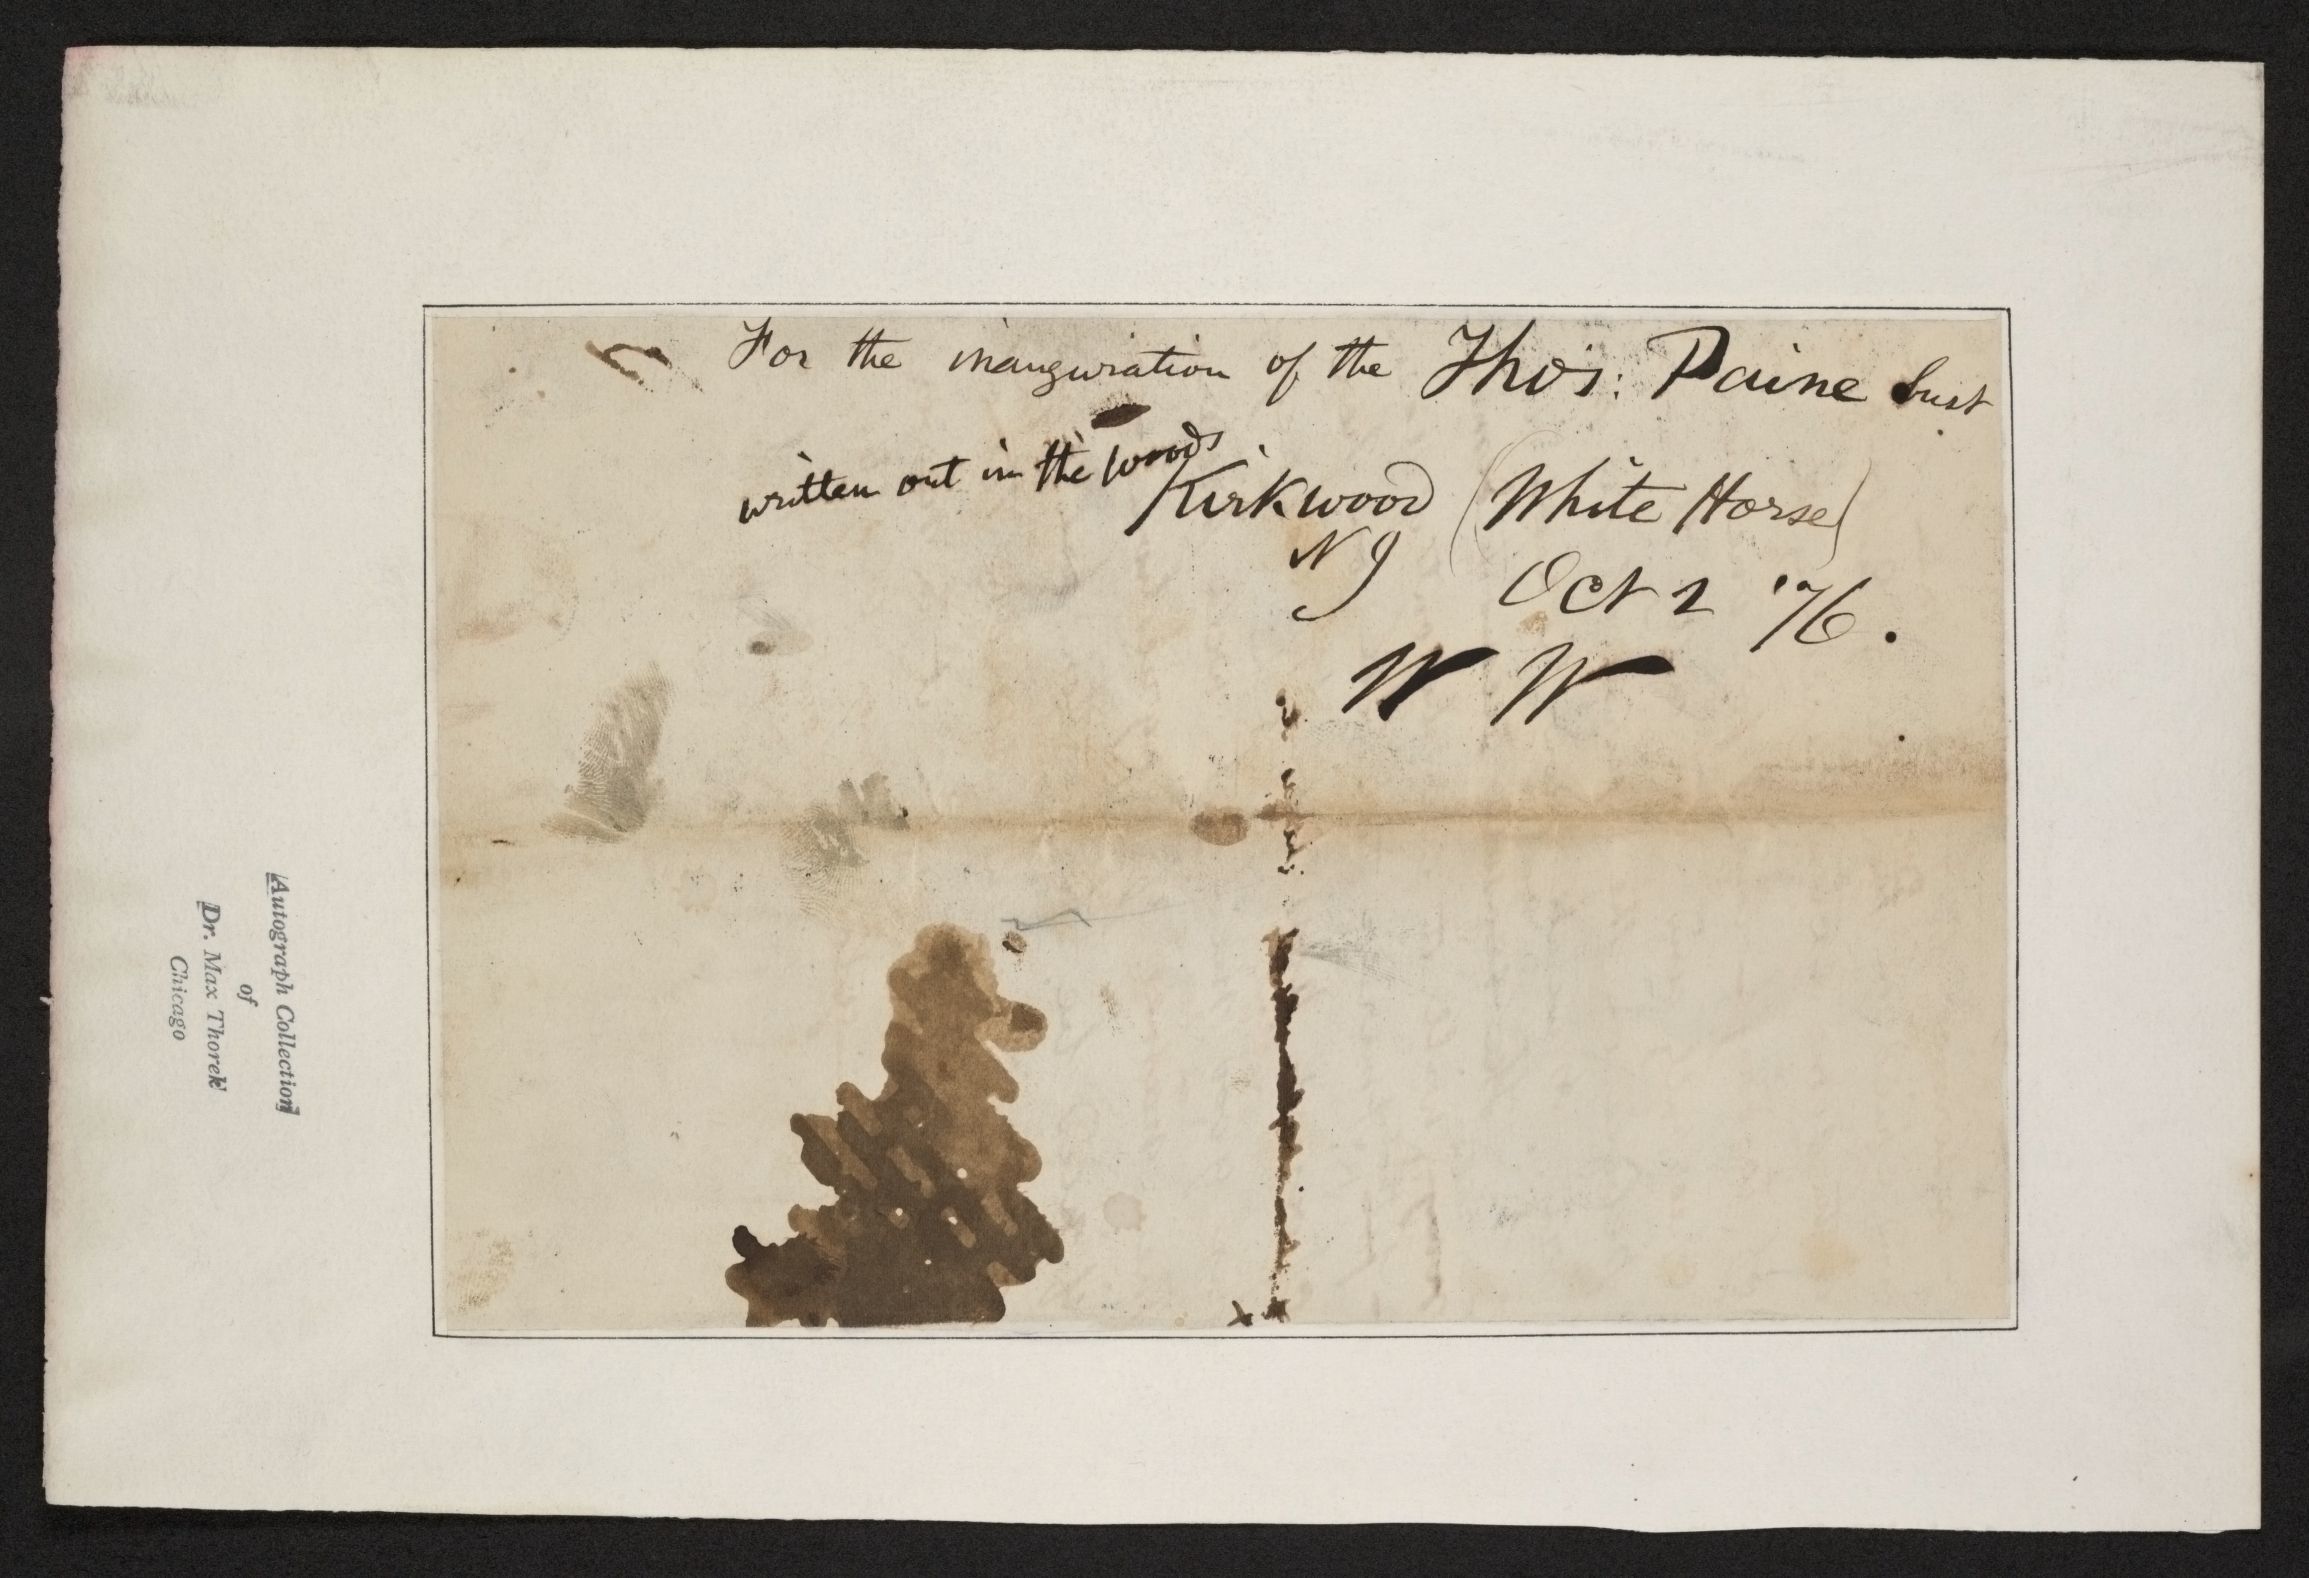 For the inauguration of the Thos: Paine bust
written out in the woods
Kirkwood (White Horse)
N J Oct 2 '76.
W W
Autograph Collection
of
Dr. Max Thorek
Chicago